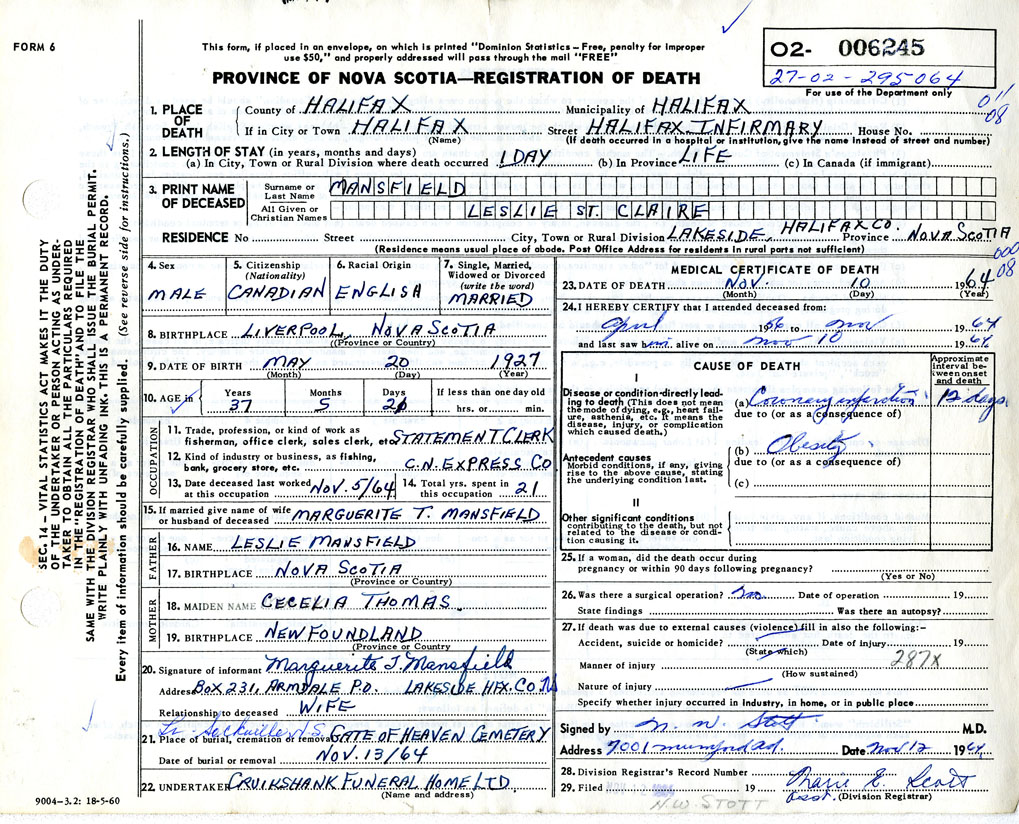 FORM 6
This form, if placed in an envelope, on which is printed "Dominion Statistics—Free, penalty for improper
use $50," and properly addressed will pass through the mail "FREE"
PROVINCE OF NOVA SCOTIA—REGISTRATION OF DEATH
O2- 006245
27-02-295064
For use of the Department only
011
08
1. PLACE OF DEATH
County of HALIFAX Municipality of HALIFAX
If in City or Town HALIFAX Street HALIFAX INFIRMARY House No.
(Name) (If death occurred in a hospital or institution, give the name instead of street and number)
2. LENGTH OF STAY (in years, months and days)
(a) In City, Town or Rural Division where death occurred 1 DAY (b) In Province LIFE (c) In Canada (if immigrant)
3. PRINT NAME OF DECEASED
Surname or Last Name MANSFIELD
All Given or Christian Names LESLIE ST. CLAIRE
RESIDENCE No Street City, Town or Rural Division LAKESIDE, HALIFAX CO. Province NOVA SCOTIA
(Residence means usual place of abode. Post Office Address for residents in rural parts not sufficient)
000
08
4. Sex MALE
5. Citizenship (Nationality) CANADIAN
6. Racial Origin ENGLISH
7. Single, Married, Widowed or Divorced (write the word) MARRIED
8. BIRTHPLACE LIVERPOOL, NOVA SCOTIA
(Province or Country)
9. DATE OF BIRTH MAY 20 1927
(Month) (Day) (Year)
10. AGE in Years 37 Months 5 Days If less than one day old hrs. or min.
OCCUPATION
11. Trade, profession, or kind of work as
fisherman, office clerk, sales clerk, etc. STATEMENT CLERK
12. Kind of industry or business, as fishing,
bank, grocery store, etc. C.N. EXPRESS CO
13. Date deceased last worked at this occupation NOV. 5/64 14. Total yrs. spent in this occupation 21
15. If married give name of wife
or husband of deceased MARGUERITE T. MANSFIELD
FATHER
16. NAME LESLIE MANSFIELD
17. BIRTHPLACE NOVA SCOTIA
(Province or Country)
MOTHER
18. MAIDEN NAME CECELIA THOMAS
19. BIRTHPLACE NEWFOUNDLAND
(Province or Country)
20. Signature of informant Marguerite T. Mansfield
Address BOX 231, ARMDALE P.O. LAKESIDE HFX. CO. NS
Relationship to deceased WIFE
Lr. Sackville, N.S.
21. Place of burial, cremation or removal GATE OF HEAVEN CEMETERY
Date of burial or removal NOV. 13/64
22. UNDERTAKER CRUIKSHANK FUNERAL HOME LTD.
(Name and address)
9004—3.2: 18-5-60
MEDICAL CERTIFICATE OF DEATH
23. DATE OF DEATH NOV. 10 1964
(Month) (Day) (Year)
24. I HEREBY CERTIFY that I attended deceased from:
April 19 to Nov 1964
and last saw him alive on Nov 10 1964
CAUSE OF DEATH
Approximate interval between onset and death
I
Disease or condition directly leading to death (This does not mean the mode of dying, e.g., heart failure, asthenia, etc. It means the disease, injury, or complication which caused death.)
(a) Coronary infarction 12 days
due to (or as a consequence of)
Antecedent causes
Morbid conditions, if any, giving rise to the above cause, stating the underlying condition last.
(b) Obesity
due to (or as a consequence of)
(c)
II
Other significant conditions
contributing to the death, but not related to the disease or condition causing it.
25. If a woman, did the death occur during
pregnancy or within 90 days following pregnancy?
(Yes or No)
26. Was there a surgical operation? No Date of operation 19
State findings Was there an autopsy?
27. If death was due to external causes (violence) fill in also the following:—
Accident, suicide or homicide? Date of injury 19
(State which)
287X
Manner of injury
(How sustained)
Nature of injury
Specify whether injury occurred in industry, in home, or in public place
Signed by N. W. Stott M.D.
Address 7001 Mumford Rd. Date Nov 12 1964
28. Division Registrar's Record Number
29. Filed 19
Asst. (Division Registrar)
N.W STOTT
SEC. 14. VITAL STATISTICS ACT MAKES IT THE DUTY
OF THE UNDERTAKER OR PERSON ACTING AS UNDER-
TAKER TO OBTAIN ALL THE PARTICULARS REQUIRED
IN THE "REGISTRATION OF DEATH" AND TO FILE THE
SAME WITH THE DIVISION REGISTRAR WHO SHALL ISSUE THE BURIAL PERMIT.
WRITE PLAINLY WITH UNFADING INK. THIS IS A PERMANENT RECORD.
Every item of information should be carefully supplied. (See reverse side for instructions.)